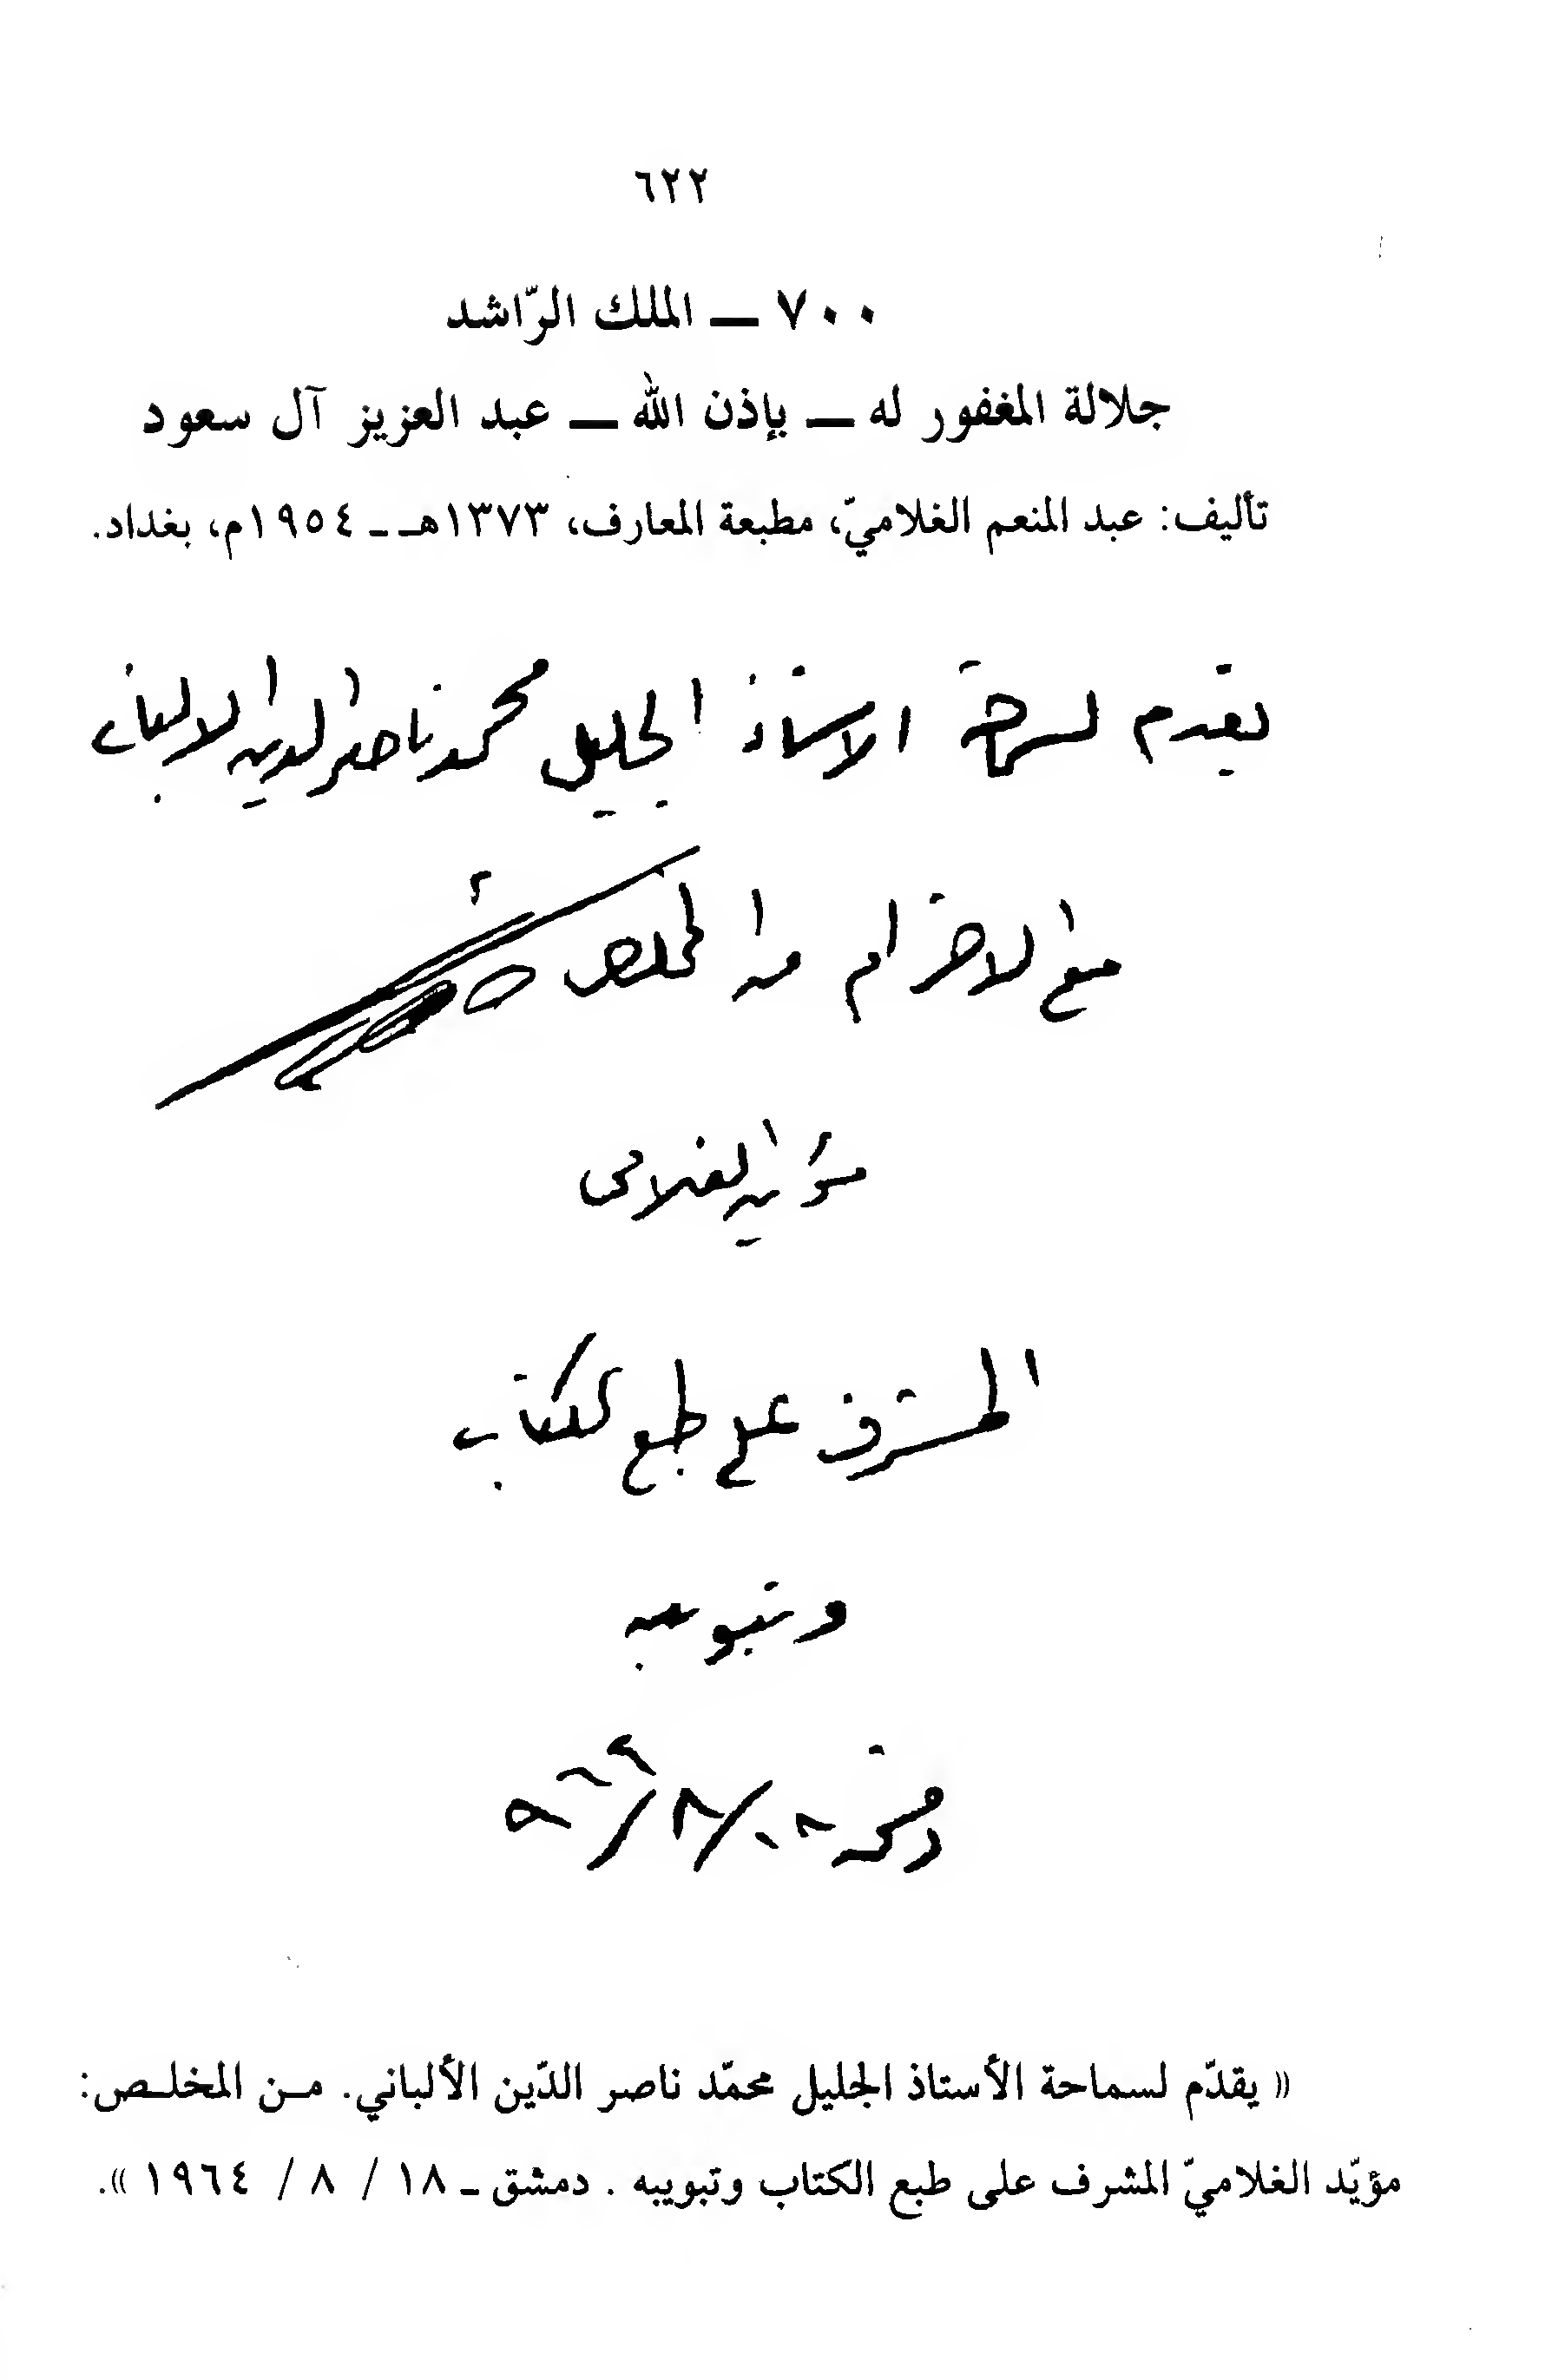 ٦٢٢
٧٠٠ ــ الملك الرّاشد
جلالة المغفور له ــ بإذن الله ــ عبد العزيز آل سعود
تأليف: عبد المنعم الغلاميّ، مطبعة المعارف، ١٣٧٣هـ ـ ١٩٥٤م، بغداد.
يقدم لسماحة الاستاذ الجليل محمد ناصر الدين الالباني
مع الاحترام من المخلص
مؤيد الغلامي
المشرف على طبع الكتاب
وتبويبه
دمشق ١٨/٨/٩٦٤
(( يقدّم لسماحة الأستاذ الجليل محمّد ناصر الدّين الألباني. مـن المخلـص:
مؤيّد الغلاميّ المشرف على طبع الكتاب وتبويبه . دمشق ـ ١٨ / ٨ / ١٩٦٤ )).